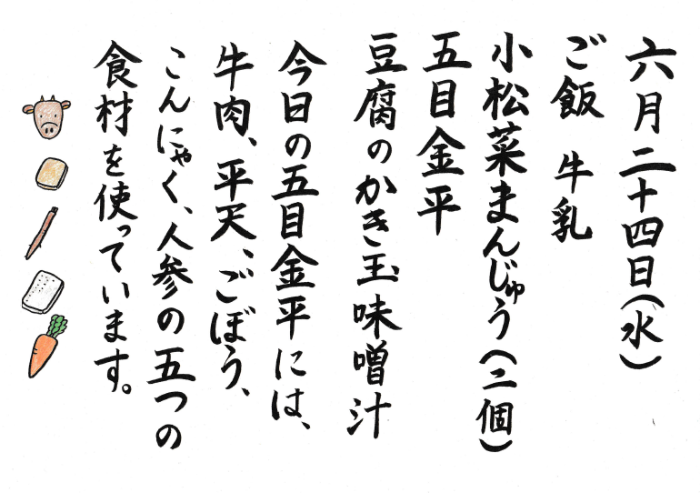 六月二十四日(水)
ご飯　牛乳
小松菜まんじゅう(二個)
五目金平
豆腐のかき玉味噌汁
今日の五目金平には、
牛肉、平天、ごぼう、
こんにゃく、人参の五つの
食材を使っています。